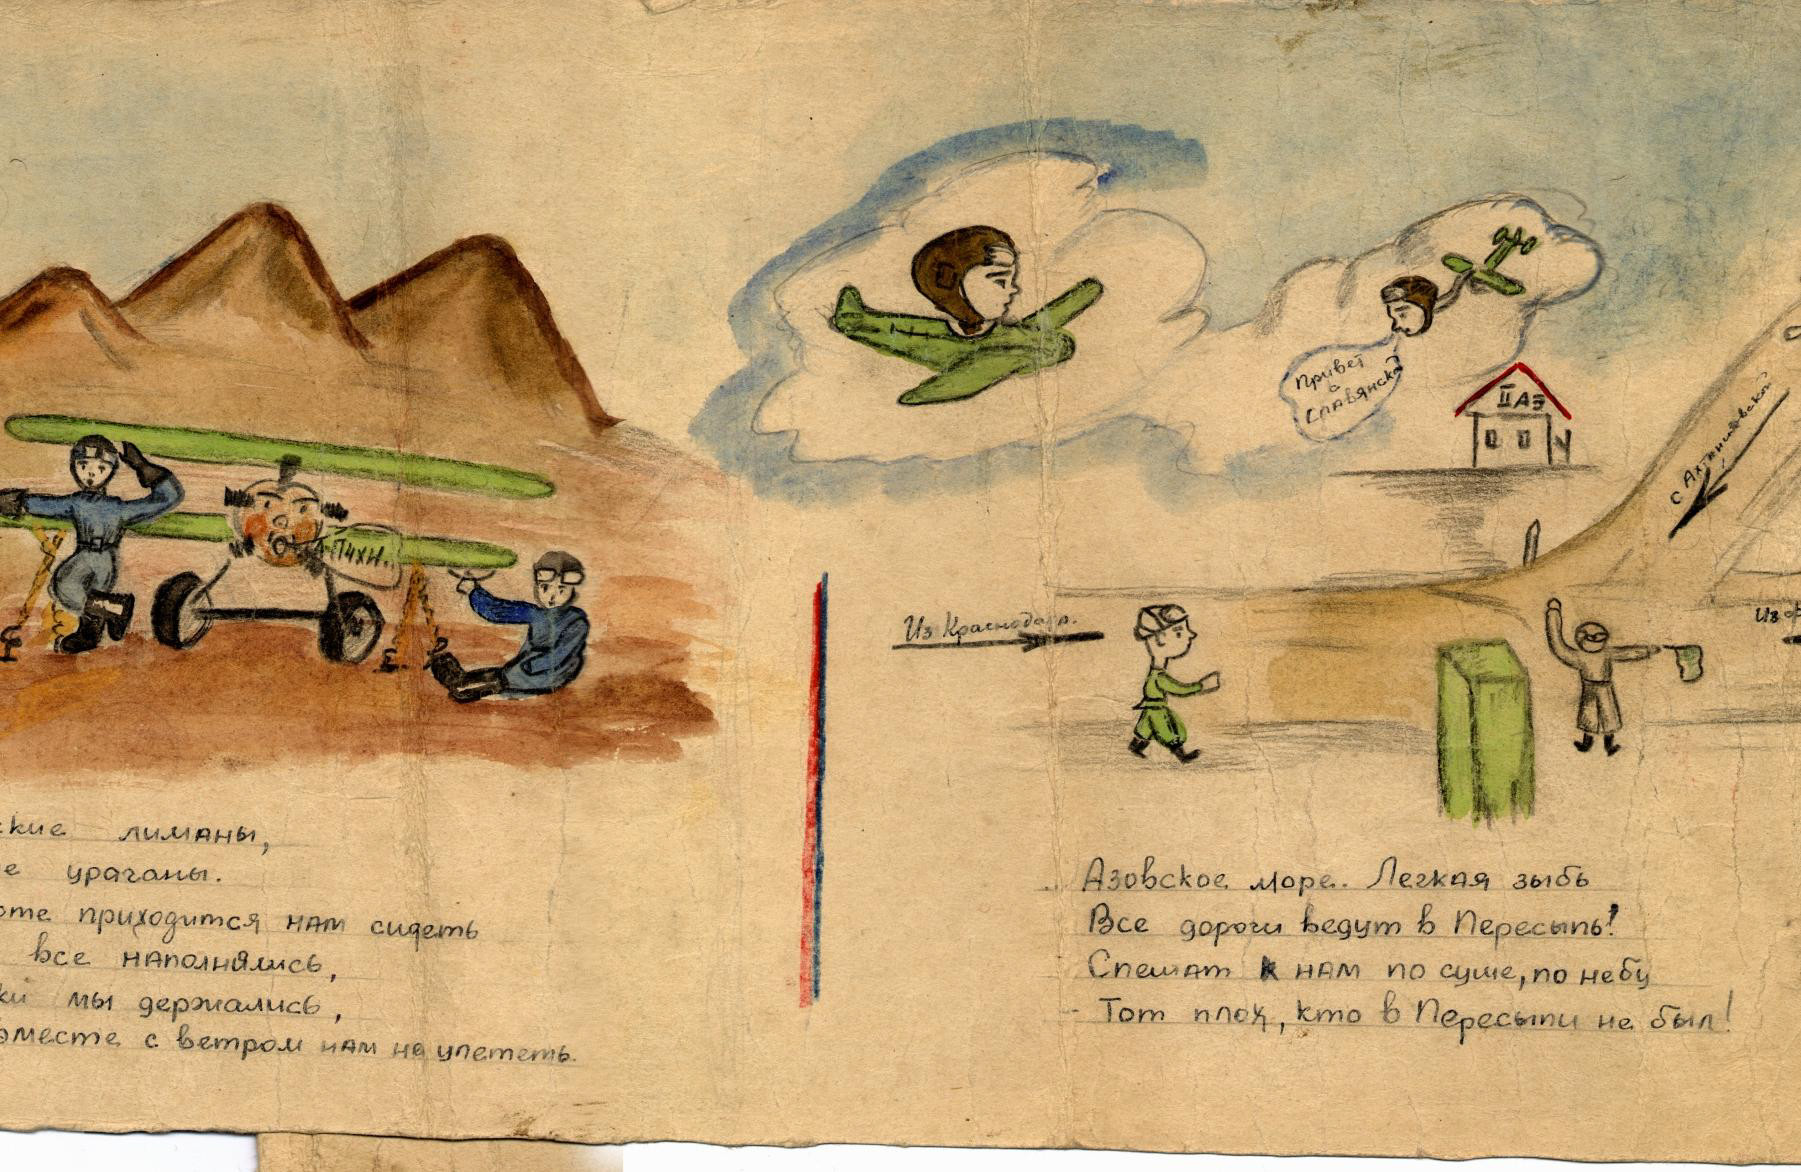 А-ПЧХИ..
ские лиманы,
е ураганы.
оте приходится нам сидеть
все наполнялись,
ки мы держались,
вместе с ветром нам не улететь.
Привет
с
Славянска
II АЭ
с Ахтанизовской
Из Краснодара.
Из Ф
Азовское море. Легкая зыбь
Все дороги ведут в Пересыпь!
Спешат к нам по суше, по небу
- Тот плох, кто в Пересыпи не был!